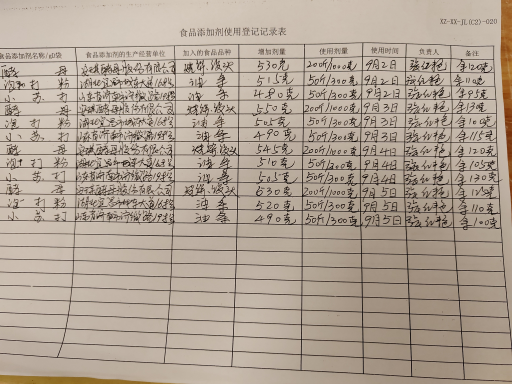 XZ-XX-JL(C2)-020
食品添加剂使用登记记录表
食品添加剂名称/g0袋 食品添加剂的生产经营单位 加入的食品品种 增加剂量 使用剂量 使用时间 负责人 备注
酵母 安琪酵母股份有限公司 烧饼、馒头 530克 200斤/1000克 9月2日 张红艳 余120克
泡打粉 油条 515克 50斤/300克 9月2日 张红艳 余110克
小苏打 油条 480克 50斤/300克 9月2日 张红艳 余95克
酵母 安琪酵母股份有限公司 烧饼、馒头 550克 200斤/1000克 9月3日 张红艳 余130克
泡打粉 油条 505克 50斤/300克 9月3日 张红艳 余100克
小苏打 油条 490克 50斤/300克 9月3日 张红艳 余115克
酵母 安琪酵母股份有限公司 烧饼、馒头 545克 200斤/1000克 9月4日 张红艳 余120克
泡打粉 油条 510克 50斤/300克 9月4日 张红艳 余105克
小苏打 油条 505克 50斤/300克 9月4日 张红艳 余130克
酵母 安琪酵母股份有限公司 烧饼、馒头 530克 200斤/1000克 9月5日 张红艳 余125克
泡打粉 油条 520克 50斤/300克 9月5日 张红艳 余110克
小苏打 油条 490克 50斤/300克 9月5日 张红艳 余100克